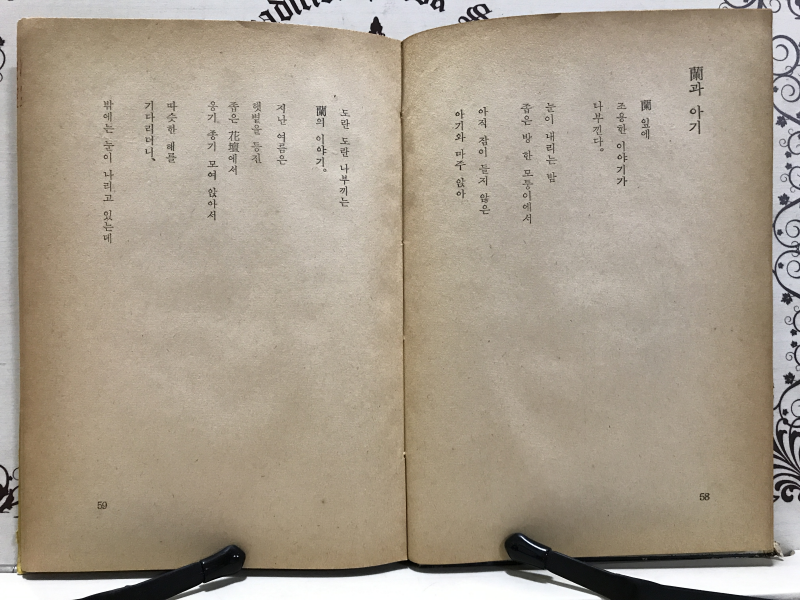 蘭과 아기
蘭 잎에
조용한 이야기가
나부낀다。
눈이 내리는 밤
좁은 방 한 모퉁이에서
아직 잠이 들지 않은
아기와 마주 앉아
58
도란 도란 나부끼는
蘭의 이야기。
지난 여름은
햇볕을 등진
좁은 花壇에서
옹기 종기 모여 앉아서
따슷한 해를
기다리더니、
밖에는 눈이 나리고 있는데
59